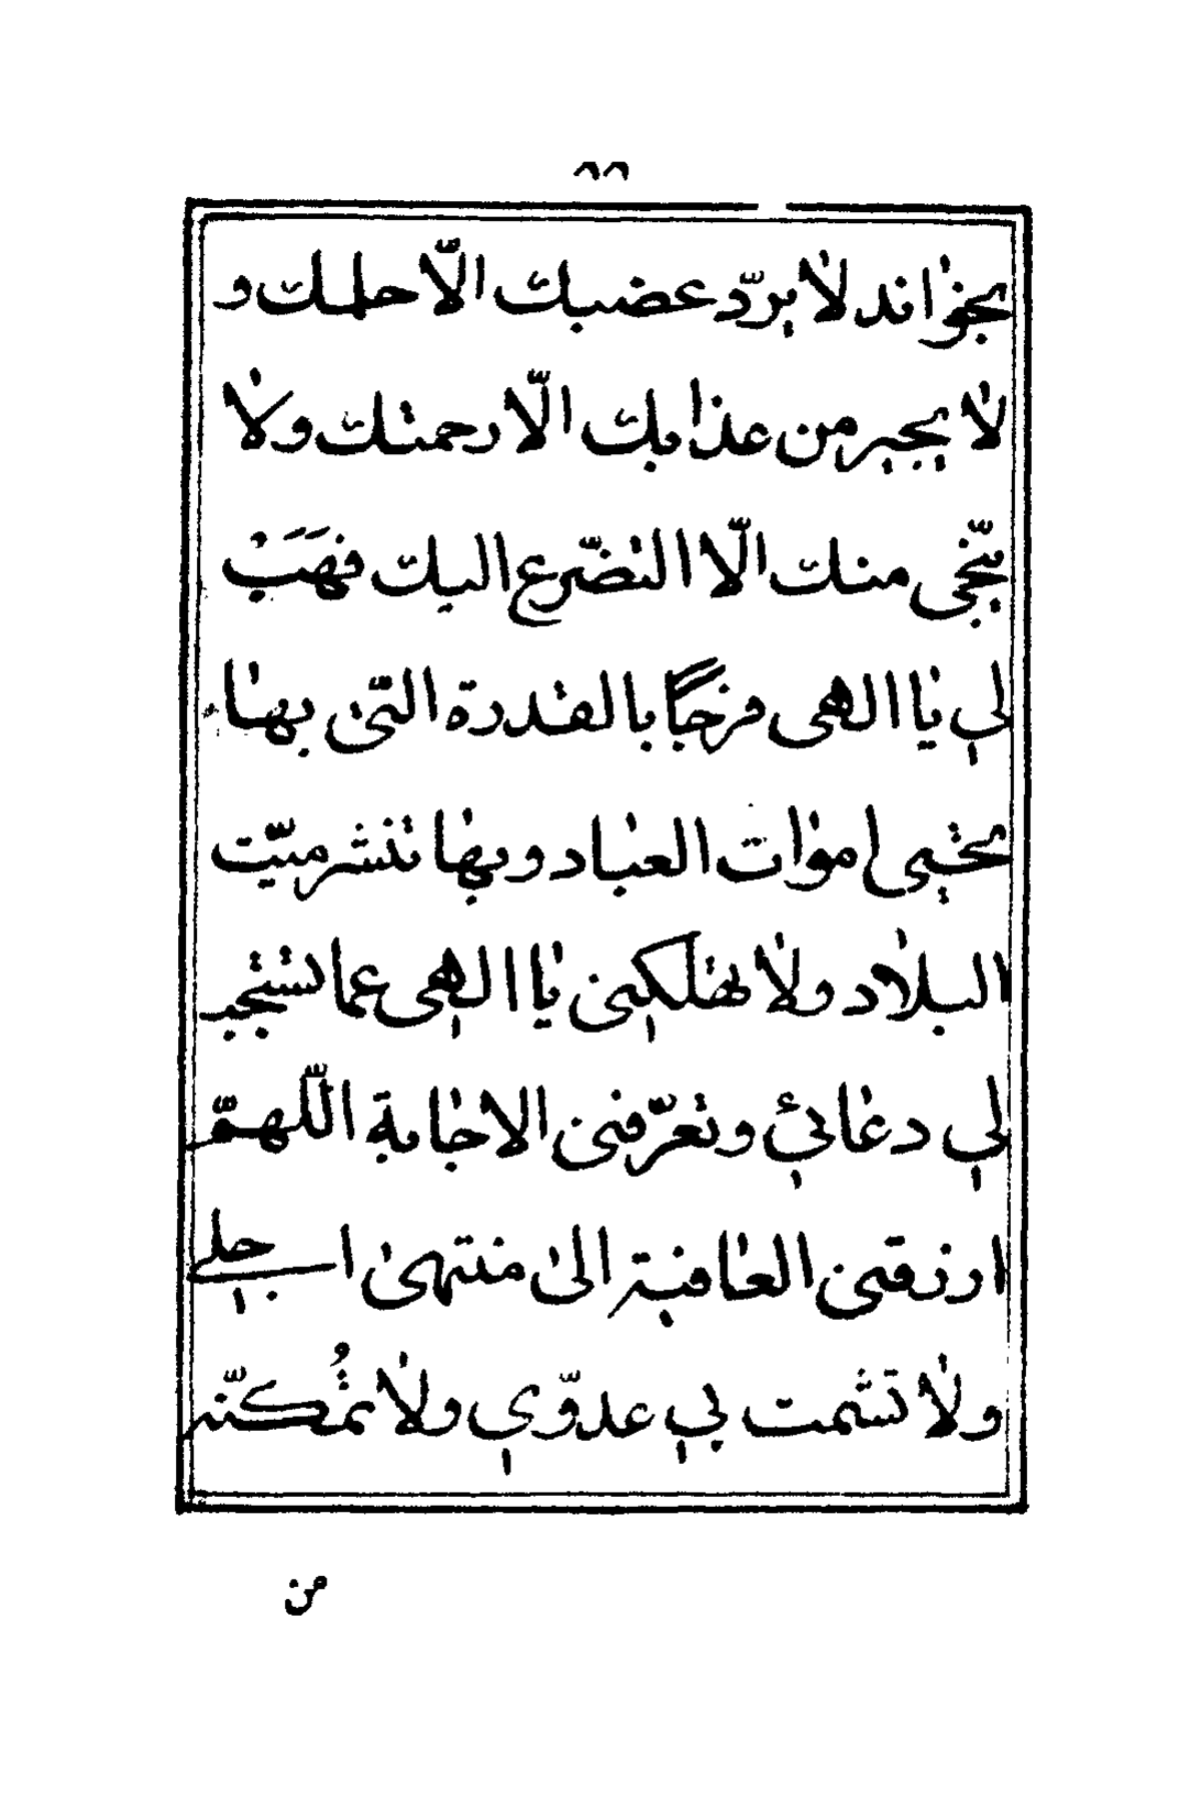 ٨٨
بخواند لا يردّ غضبك الّا حلمك و
لا يجير من عذابك الّا رحمتك ولا
ينجّى منك الّا التضّرع اليك فهَبْ
لي يا الهى فرجًا بالقدرة التّى بها
تحيى اموات العباد وبها تنشر ميّت
البلاد ولا تهلكنى يا الهى غما تستجيب
لي دعائي وتعرّفنى الاجابة اللّهمّ
ارزقنى العافية الى منتهى اجلي
ولا تشمت بي عدوّي ولا تُمكنّه
من